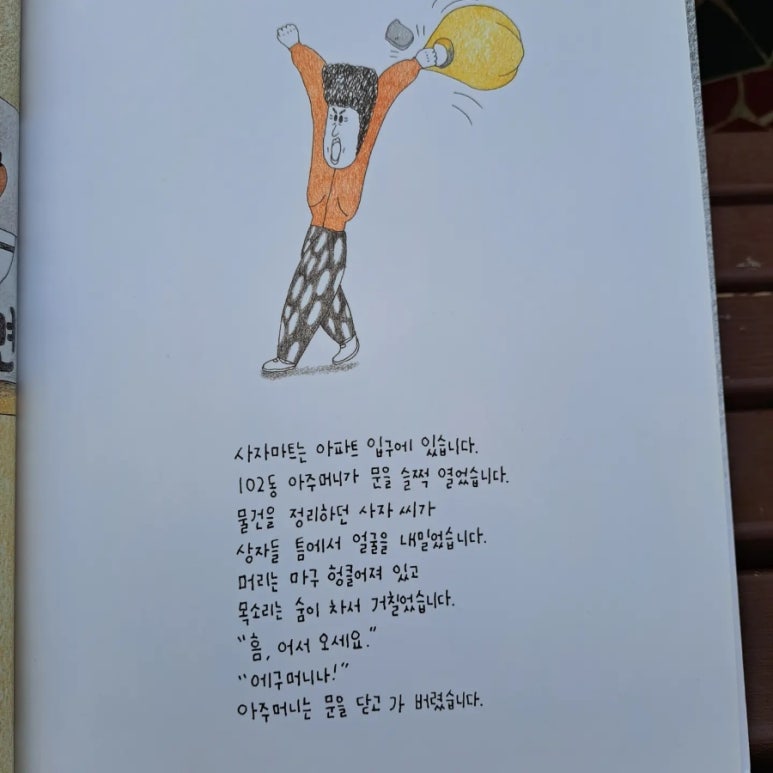 사자마트는 아파트 입구에 있습니다.
102동 아주머니가 문을 슬쩍 열었습니다.
물건을 정리하던 사자 씨가
상자들 틈에서 얼굴을 내밀었습니다.
머리는 마구 헝클어져 있고
목소리는 숨이 차서 거칠었습니다.
"흠, 어서 오세요."
"에구머니나!"
아주머니는 문을 닫고 가 버렸습니다.